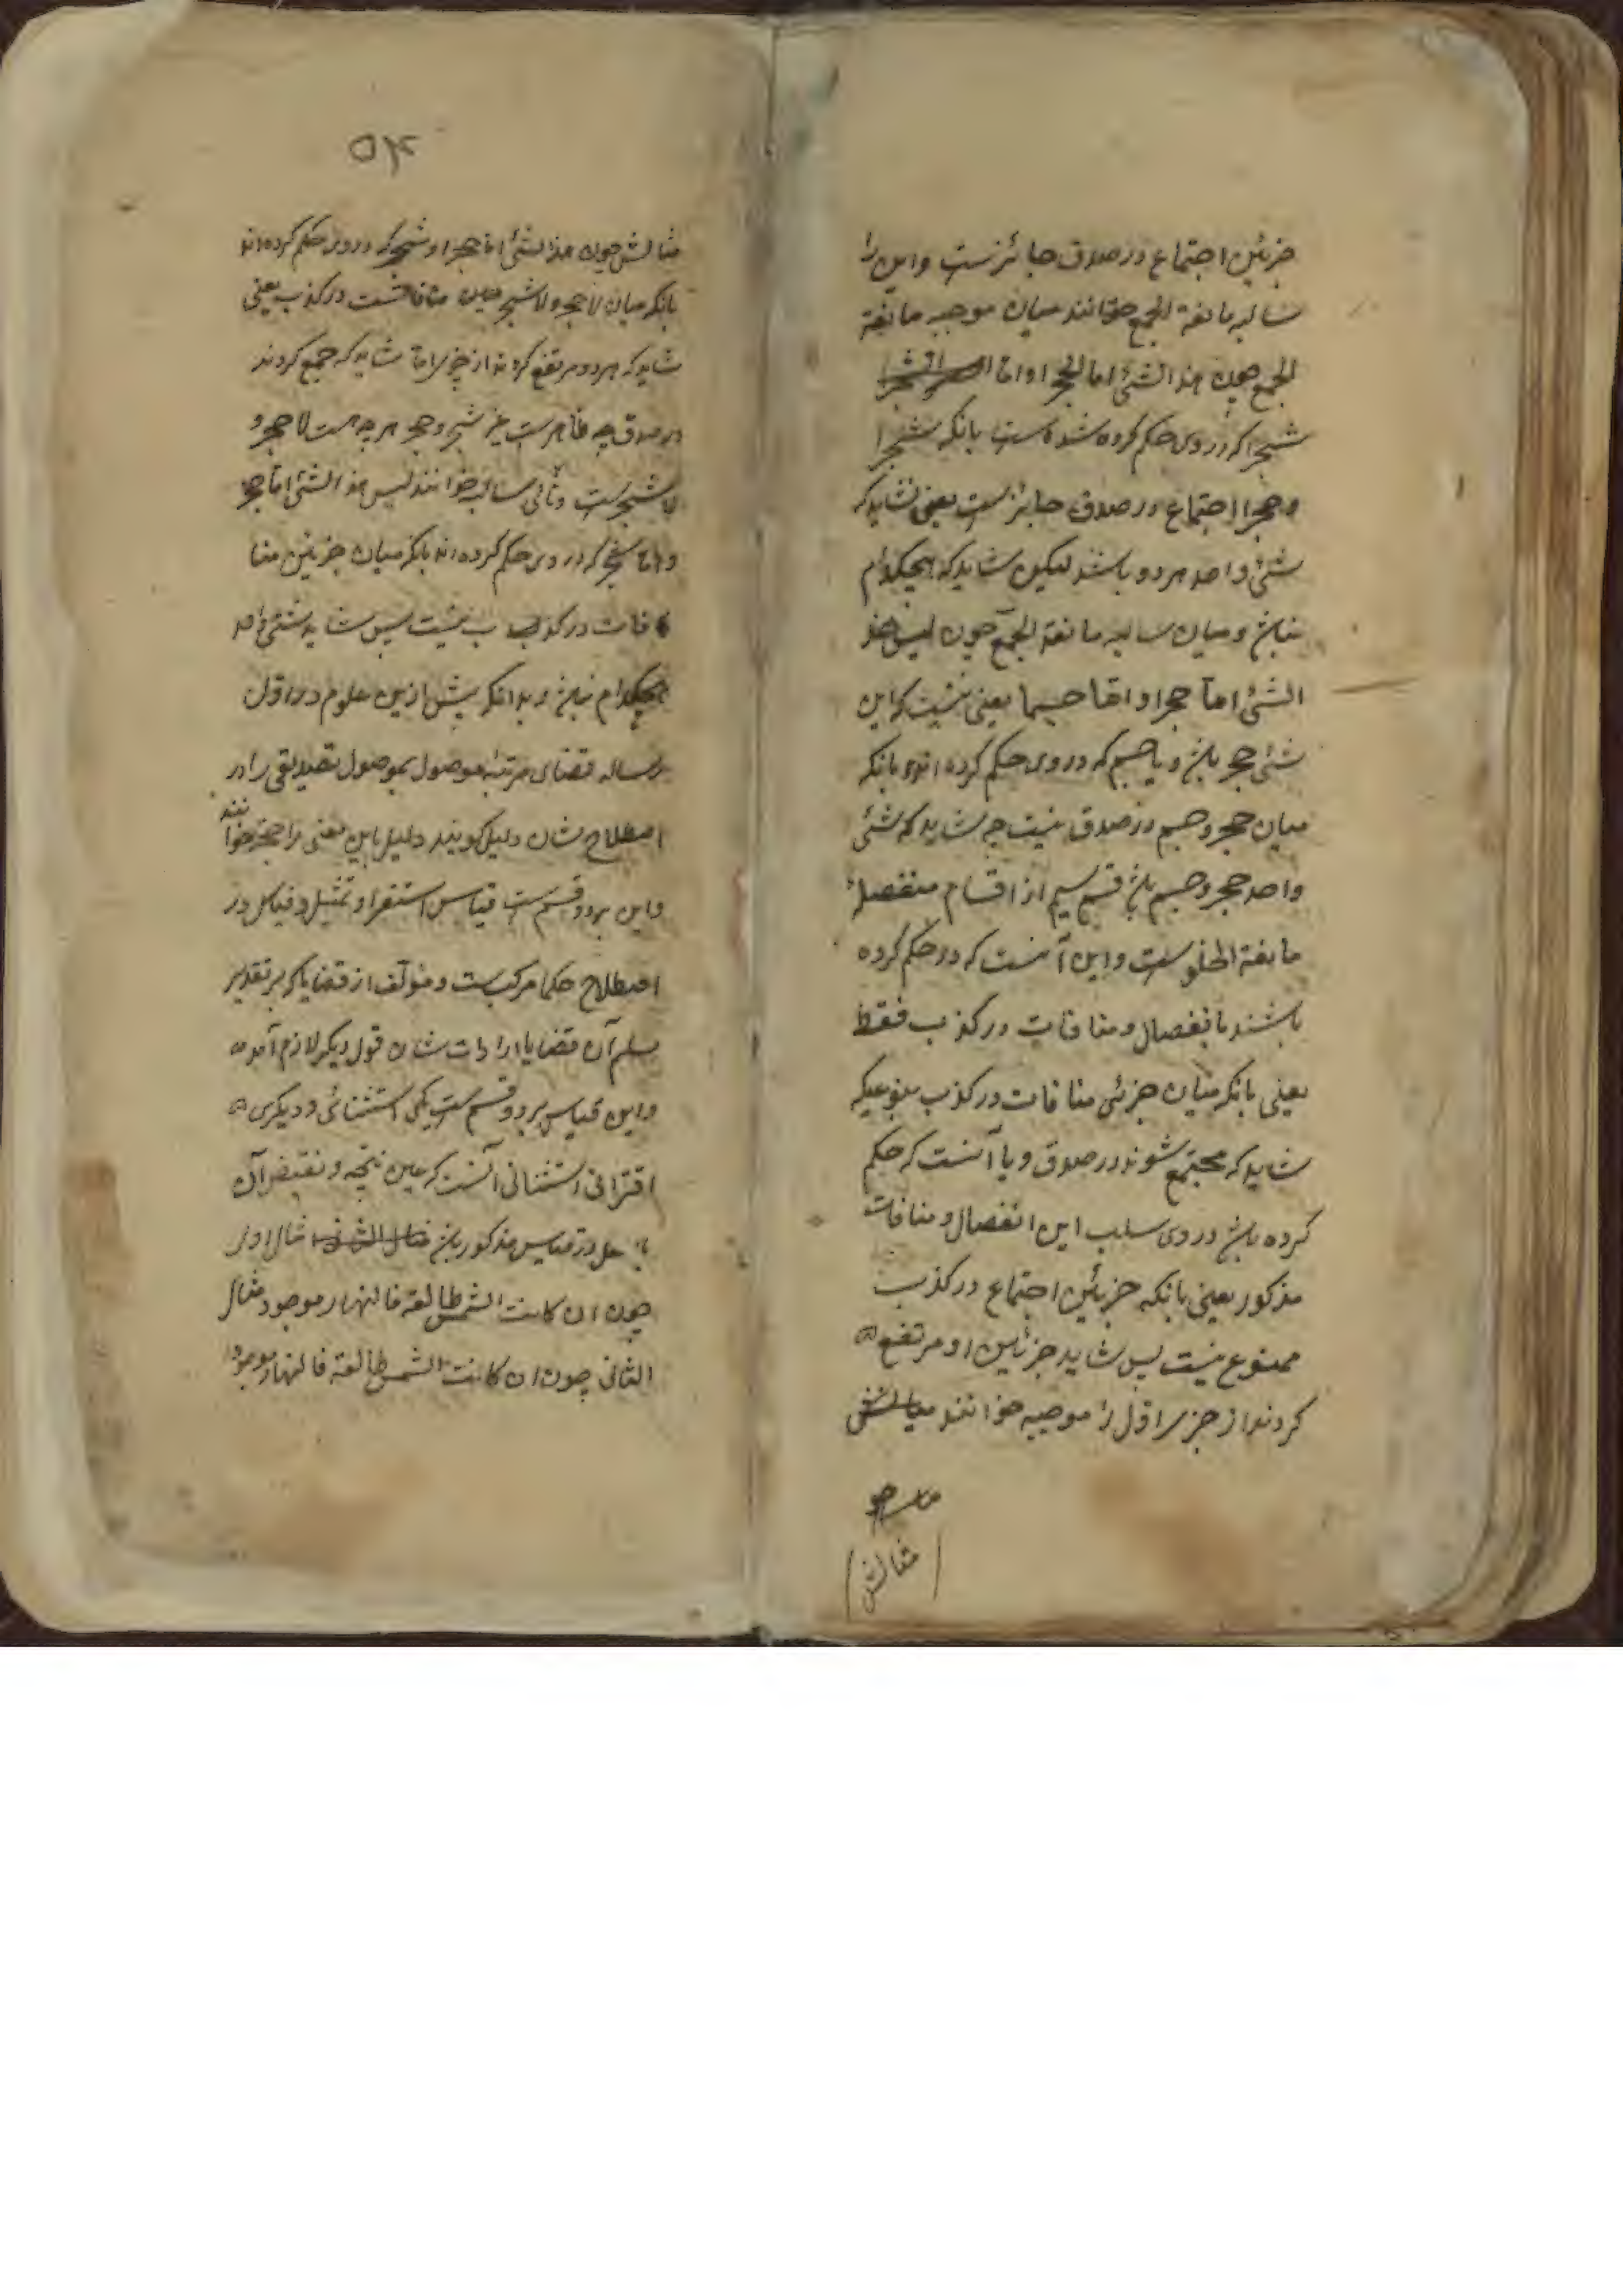 جزئین اجتماع در صدق جائزست واین را
سالبه مانعة الجمع خوانند میان موجبه مانعة
الجمع چون هذا الشئ اما لحجرا واما
شجرا که در وی حکم کرده شده است بانکه شجرا
وحجرا اجتماع در صدق جائزست یعنی نشاید که
شئ واحد هر دو باشند لیکن شاید که هیچکدام
نباش ومیان سالبه مانعة الجمع چون لیس هذ
الشئ اما حجرا واما جسما یعنی نیست که این
شئ حجر باش ویا جسم که در وی حکم کرده اند بانکه
میان حجر وجسم در صدق نیست چه شاید که شئ
واحد حجر وجسم باش قسم سیم از اقسام منفصله
مانعة الخلو ست واین آنست که در حکم کرده
باشند بانفصال ومنافات در کذب فقط
یعنی بانکه میان جزئی منافات در کذب بنوعیکه
شاید که مجتمع شوند در صدق ویا آنست که حکم
کرده باش در وی سلب این انفصال ومنافات
مذکور یعنی بانکه جزئین اجتماع در کذب
ممنوع نیست پس شاید جزئین او مرتفع
کردند از جز اول را موجبه خوانند مثالش
مثالش
۵۴
مثالش چون هذا الشئ اما حجرا و شجر که در وی حکم کرده اند
بانکه میان لاحجر ولاشجر منافاتست در کذب یعنی
شاید که هر دو مرتفع کردند از چیز اما شاید که جمع کردند
در صدق چه ظاهرست غیر شجر وحجر هر چه هست لاحجر و
لاشجرست وثانی سالبه خوانند لیس هذ الشئ اما حجر
واما شجر که در وی حکم کرده اند بانکه میان جزئین منا
فات در کذب نیست پس شاید شئ واحد
هیچکدام نباش وبدانکه پیش ازین علوم در اول
رساله قضای مرتبه موصول بموصول تصدیقی را در
اصطلاح شان دلیل کویند دلیل باین معنی را حجة خوانند
واین بر دو قسمست قیاس استقرا وتمثیل وقیاس در
اصطلاح حکما مرکبست ومؤلف از قضایا که بر تقدیر
تسلم آن قضایا را ذات شان قول دیکر لازم آمده
واین قیاس بر دو قسم ست یکی استثنائی ودیکری
اقترانی استثنائی آنست که عین نتیجه ونقیض آن
در قیاس مذکور باش مثال اول
چون ان کانت الشمس طالعة فالنهار موجود مثال
الثانی چون ان کانت الشمس طالعة فالنهار موجود